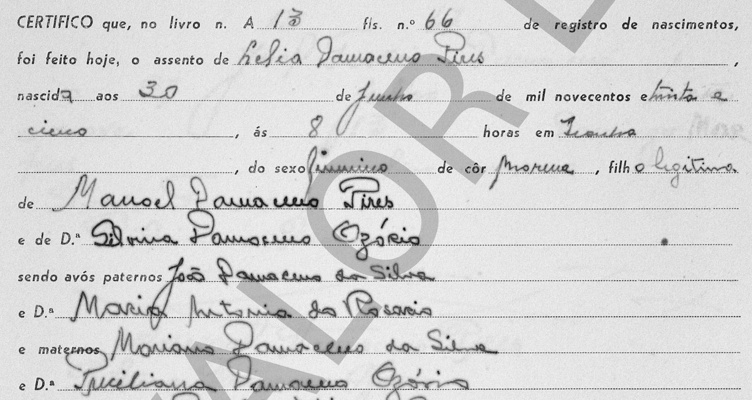 CERTIFICO que, no livro n. A 13 fls. n.º 66 de registro de nascimentos,
foi feito hoje, o assento de Lelia Damaceno Pires,
nascida aos 30 de Junho de mil novecentos e trinta e
cinco, ás 8 horas em
, do sexo feminino de côr morena, filha legitima
de Manoel Damaceno Pires
e de D.ª Silvina Damaceno Ozório
sendo avós paternos João Damaceno da Silva
e D.ª Maria Antonia do Rosario
e maternos Mariano Damaceno da Silva
e D.ª Damaceno Ozório
VALOR